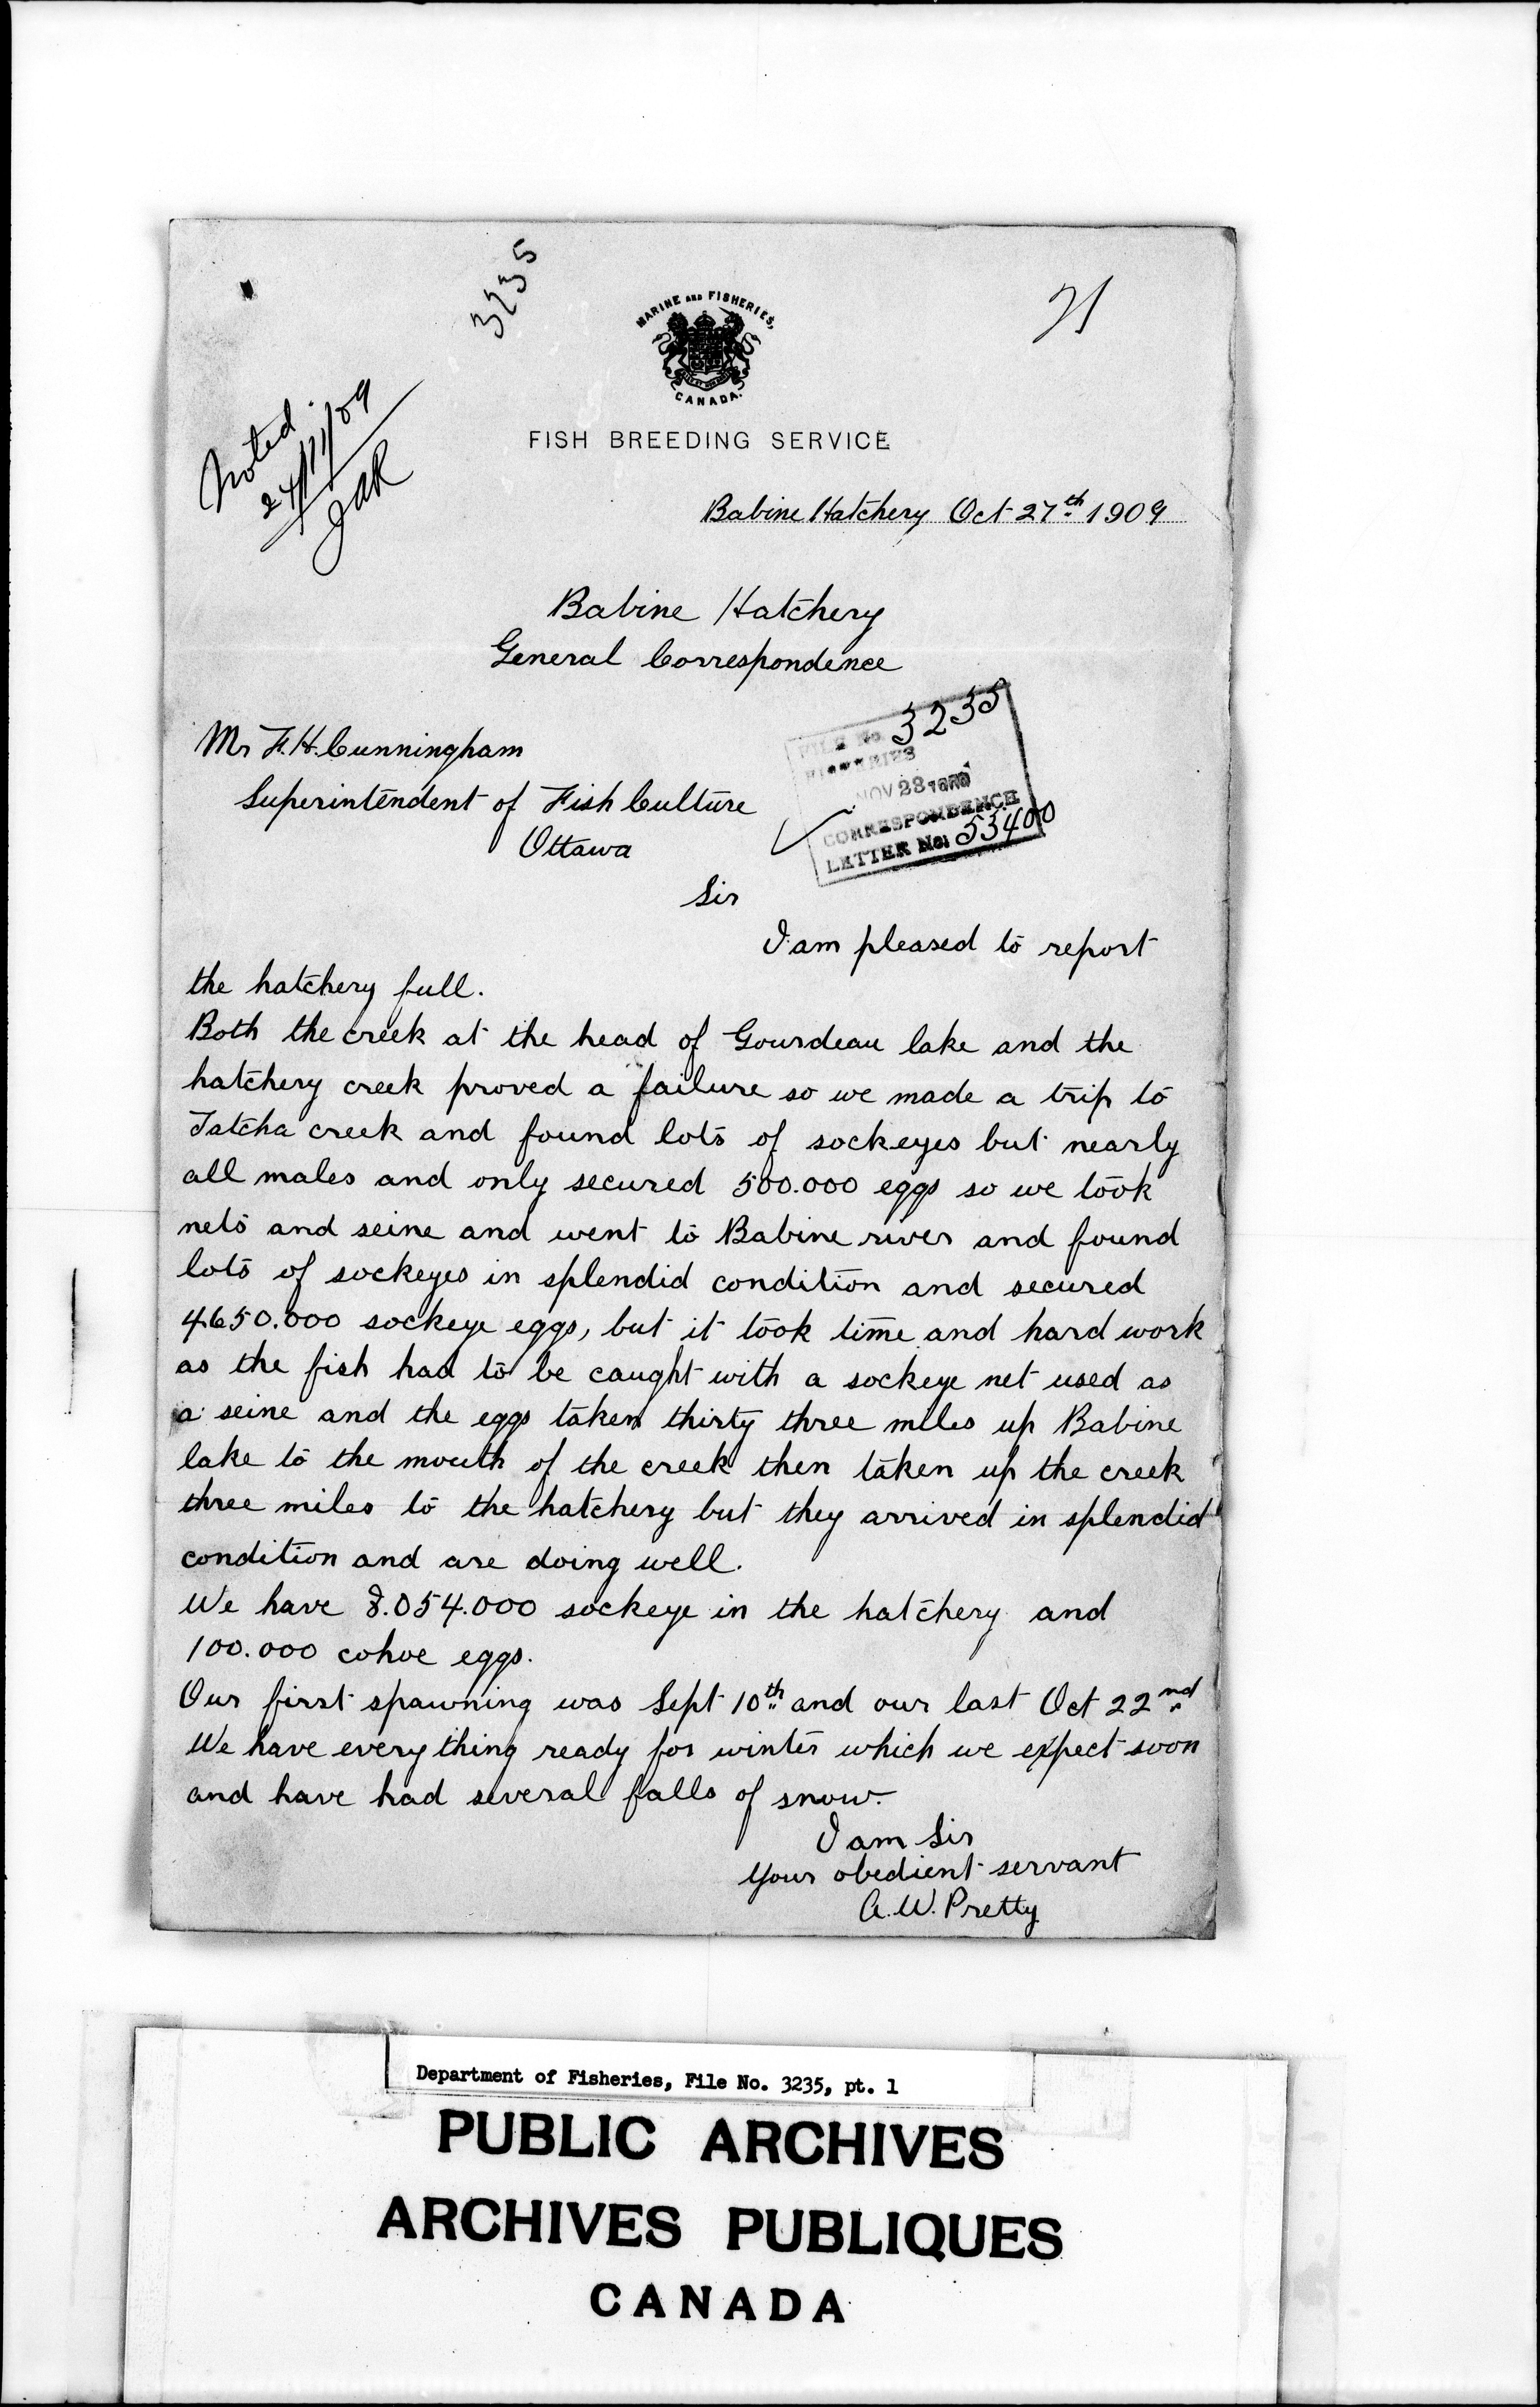 3235
21
MARINE AND FISHERIES,
CANADA.
FISH BREEDING SERVICE
Noted
24/11/09
JAR
Babine Hatchery Oct 27th 1909
Babine Hatchery
General Correspondence
Mr F.H. Cunningham
Superintendent of Fish Culture
Ottawa
FILE No. 3235
FISHERIES
NOV 23 1909
CORRESPONDENCE
LETTER No: 53400
Sir
I am pleased to report
the hatchery full.
Both the creek at the head of Gourdeau lake and the
hatchery creek proved a failure so we made a trip to
Tatcha creek and found lots of sockeyes but nearly
all males and only secured 500.000 eggs so we took
nets and seine and went to Babine river and found
lots of sockeyes in splendid condition and secured
4650.000 sockeye eggs, but it took time and hard work
as the fish had to be caught with a sockeye net used as
a seine and the eggs taken thirty three miles up Babine
lake to the mouth of the creek then taken up the creek
three miles to the hatchery but they arrived in splendid
condition and are doing well.
We have 8.054.000 sockeye in the hatchery and
100.000 cohoe eggs.
Our first spawning was Sept 10th and our last Oct 22nd
We have every thing ready for winter which we expect soon
and have had several falls of snow.
I am Sir
Your obedient servant
A.W. Pretty
Department of Fisheries, File No. 3235, pt. 1
PUBLIC ARCHIVES
ARCHIVES PUBLIQUES
CANADA